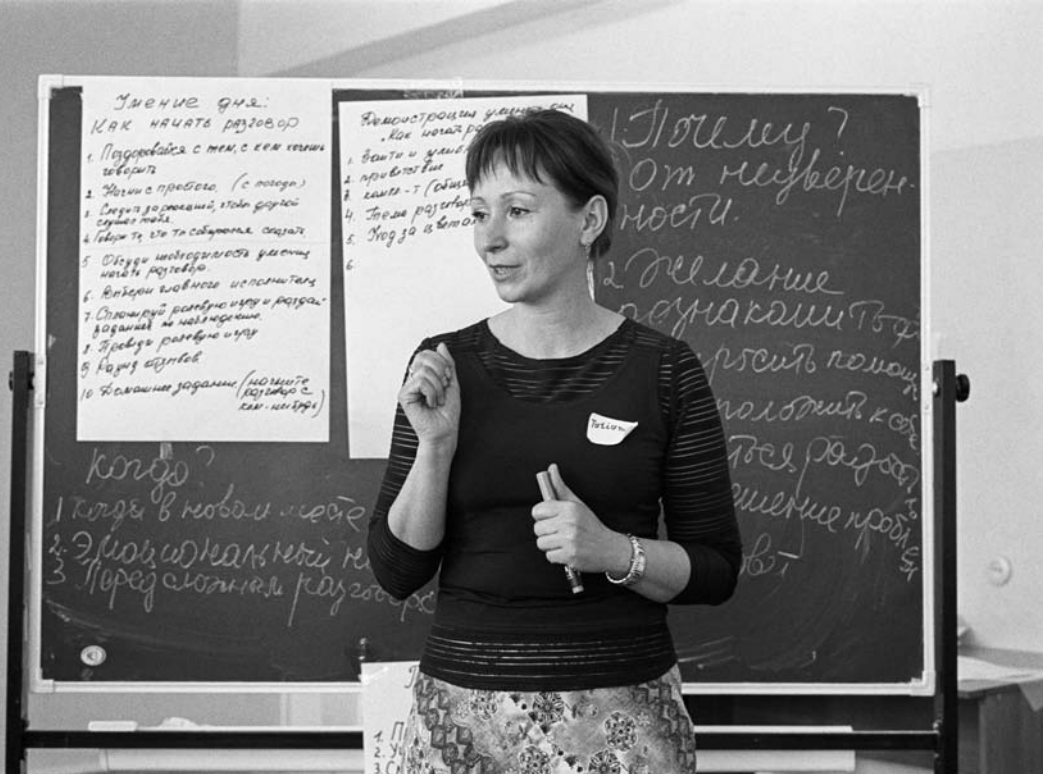 Умение дня:
КАК НАЧАТЬ РАЗГОВОР
1. Поздоровайся с тем, с кем хочешь
говорить
2. Начни с простого. (с погоды)
3. Следить за реакцией, чтобы другой
слушал тебя.
4. Говори то, что ты собирался сказать
5. Обсуди необходимость умения
начать разговор.
6. Выбери главного исполнителя
7. Спланируй ролевую игру и раздай
задания по наблюдению.
8. Проведи ролевую игру
9. Раунд отзывов
10. Домашнее задание (начните
разговор с
кем-нибудь)
Демонстрация умения
"Как начать
1. Зайти и
2. приветствие
3. (общ
4. Тема разговор
5. Уход за цветам
6.
1. Почему?
От неуверен-
ности.
2. Желание
познакомиться
просить помощи
положить к себе
проблем
Когда?
1 когда в новом месте
2. Эмоциональный
3. Перед сложным разговором
1. П
2. У
3. С